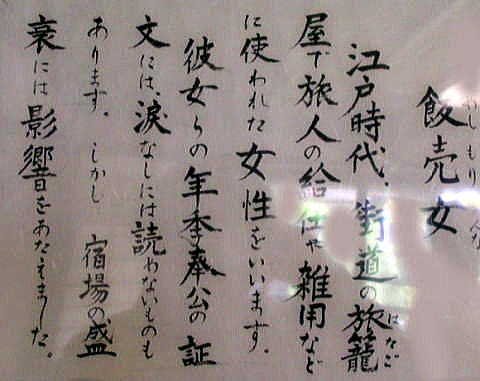 飯売女
江戸時代、街道の旅籠
はたご
屋で旅人の給仕や雑用など
に使われた女性をいいます。
彼女らの年季奉公の証
文には、涙なしには読めないものも
あります。しかし 宿場の盛
衰には影響をあたえました。